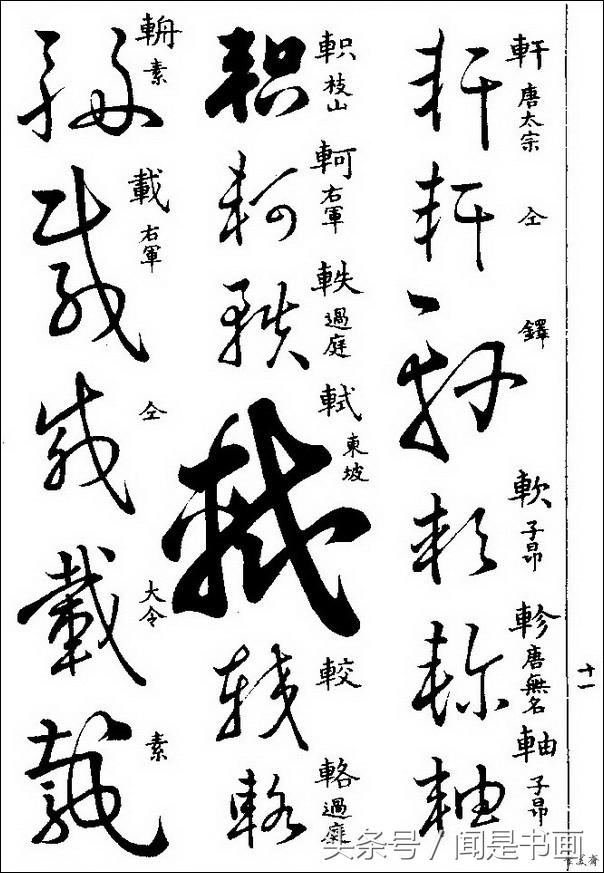 軒 唐太宗
仝
鐸
軟 子昂
軫 唐無名
軸 子昂
軹 枝山
軻 右軍
軼 過庭
軾 東坡
較
輅 過庭
輈 素
載 右軍
仝
大令
素
十一
头条号 / 闻是书画